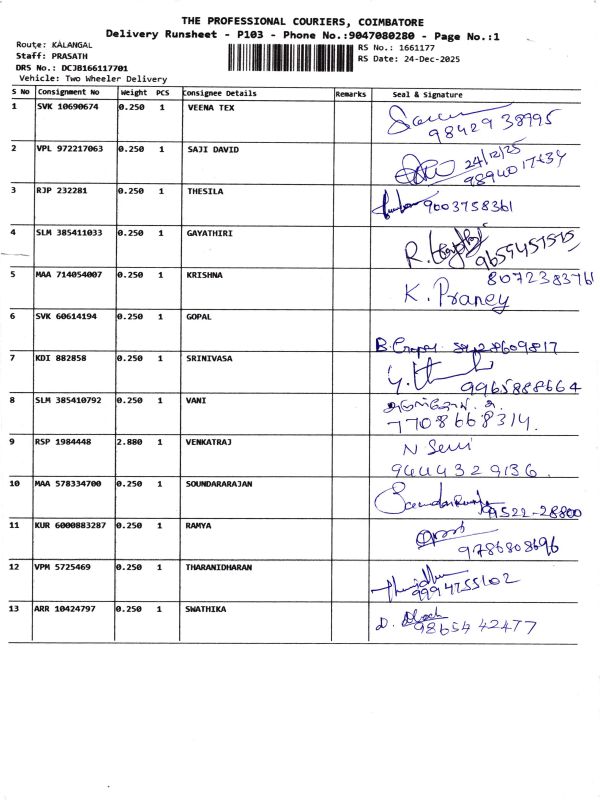 THE PROFESSIONAL COURIERS, COIMBATORE
Delivery Runsheet - P103 - Phone No.:9047080280 - Page No.:1
Route: KALANGAL
Staff: PRASATH
DRS No.: DCJB166117701
Vehicle: Two Wheeler Delivery
RS No.: 1661177
RS Date: 24-Dec-2025
S No Consignment No Weight PCS Consignee Details Remarks Seal & Signature
1 SVK 10690674 0.250 1 VEENA TEX
98429 38995
2 VPL 972217063 0.250 1 SAJI DAVID
24/12/25
3 RJP 232281 0.250 1 THESILA
9003758361
4 SLM 385411033 0.250 1 GAYATHIRI
R.
5 MAA 714054007 0.250 1 KRISHNA
8072383761
K. Praney
6 SVK 60614194 0.250 1 GOPAL
B.
7 KDI 882858 0.250 1 SRINIVASA
9965888664
8 SLM 385410792 0.250 1 VANI
7708668314.
9 RSP 1984448 2.880 1 VENKATRAJ
N Selvi
9444329136.
10 MAA 578334700 0.250 1 SOUNDARARAJAN
99522-28800
11 KUR 6000883287 0.250 1 RAMYA
9786808696
12 VPM 5725469 0.250 1 THARANIDHARAN
9994755102
13 ARR 10424797 0.250 1 SWATHIKA
D.
98654 42477